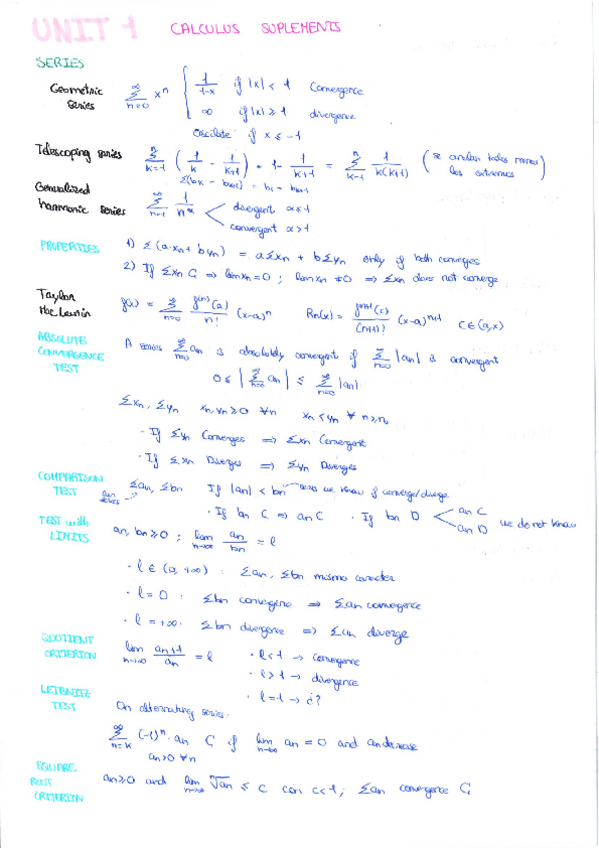 UNIT 1 CALCULUS SUPLEMENTS
SERIES
Geometric series ∑_{n=0}^{∞} x^n { 1/(1-x) if |x| < 1 Convergence
∞ if |x| ≥ 1 divergence
Oscilate if x ≤ -1
Telescoping series ∑_{k=1}^{n} (1/k - 1/(k+1)) = 1 - 1/(k+1) = ∑_{k=1}^{n} 1/(k(k+1)) (se anulan todos menos los extremos)
∑(bk - bk+1) = b1 - bk+1
Generalized harmonic series ∑_{n=1}^{∞} 1/n^α < divergent α ≤ 1
convergent α > 1
PROPERTIES 1) ∑(a·xn + byn) = a∑xn + b∑yn only if both converges
2) If ∑xn C ⇒ lim xn = 0 ; lim xn ≠ 0 ⇒ ∑xn does not converge
Taylor Mac Laurin f(x) = ∑_{n=0}^{∞} f^(n)(a)/n! (x-a)^n Rn(x) = f^{n+1}(c)/(n+1)! (x-a)^{n+1} c ∈ (a,x)
ABSOLUTE CONVERGENCE TEST A series ∑_{n=0}^{∞} an is absolutely convergent if ∑_{n=0}^{∞} |an| is convergent
0 ≤ |∑_{n=0}^{∞} an| ≤ ∑_{n=0}^{∞} |an|
∑xn, ∑yn xn, yn ≥ 0 ∀n xn ≤ yn ∀ n ≥ n0
· If ∑yn Converges ⇒ ∑xn Convergent
· If ∑xn Diverges ⇒ ∑yn Diverges
COMPARISON TEST ∑an, ∑bn If |an| < bn series we know if converge/diverge
· If bn C ⇒ an C · If bn D < an C
an D we do not know
TEST with LIMITS an, bn ≥ 0 ; lim_{n→∞} an/bn = l
· l ∈ (0, +∞) : ∑an, ∑bn mismo caracter
· l = 0 : ∑bn convergine ⇒ ∑an convergence
· l = +∞ : ∑bn divergence ⇒ ∑an diverge
QUOTIENT CRITERION lim_{n→∞} an+1/an = l · l < 1 → convergence
· l > 1 → divergence
· l = 1 → ¿?
LEIBNITZ TEST On alternating series:
∑_{n=k}^{∞} (-1)^n · an C if lim_{n→∞} an = 0 and an decrease
an > 0 ∀n
SQUARE ROOT CRITERION an ≥ 0 and lim_{n→∞} ⁿ√an ≤ c con c < 1; ∑an convergence